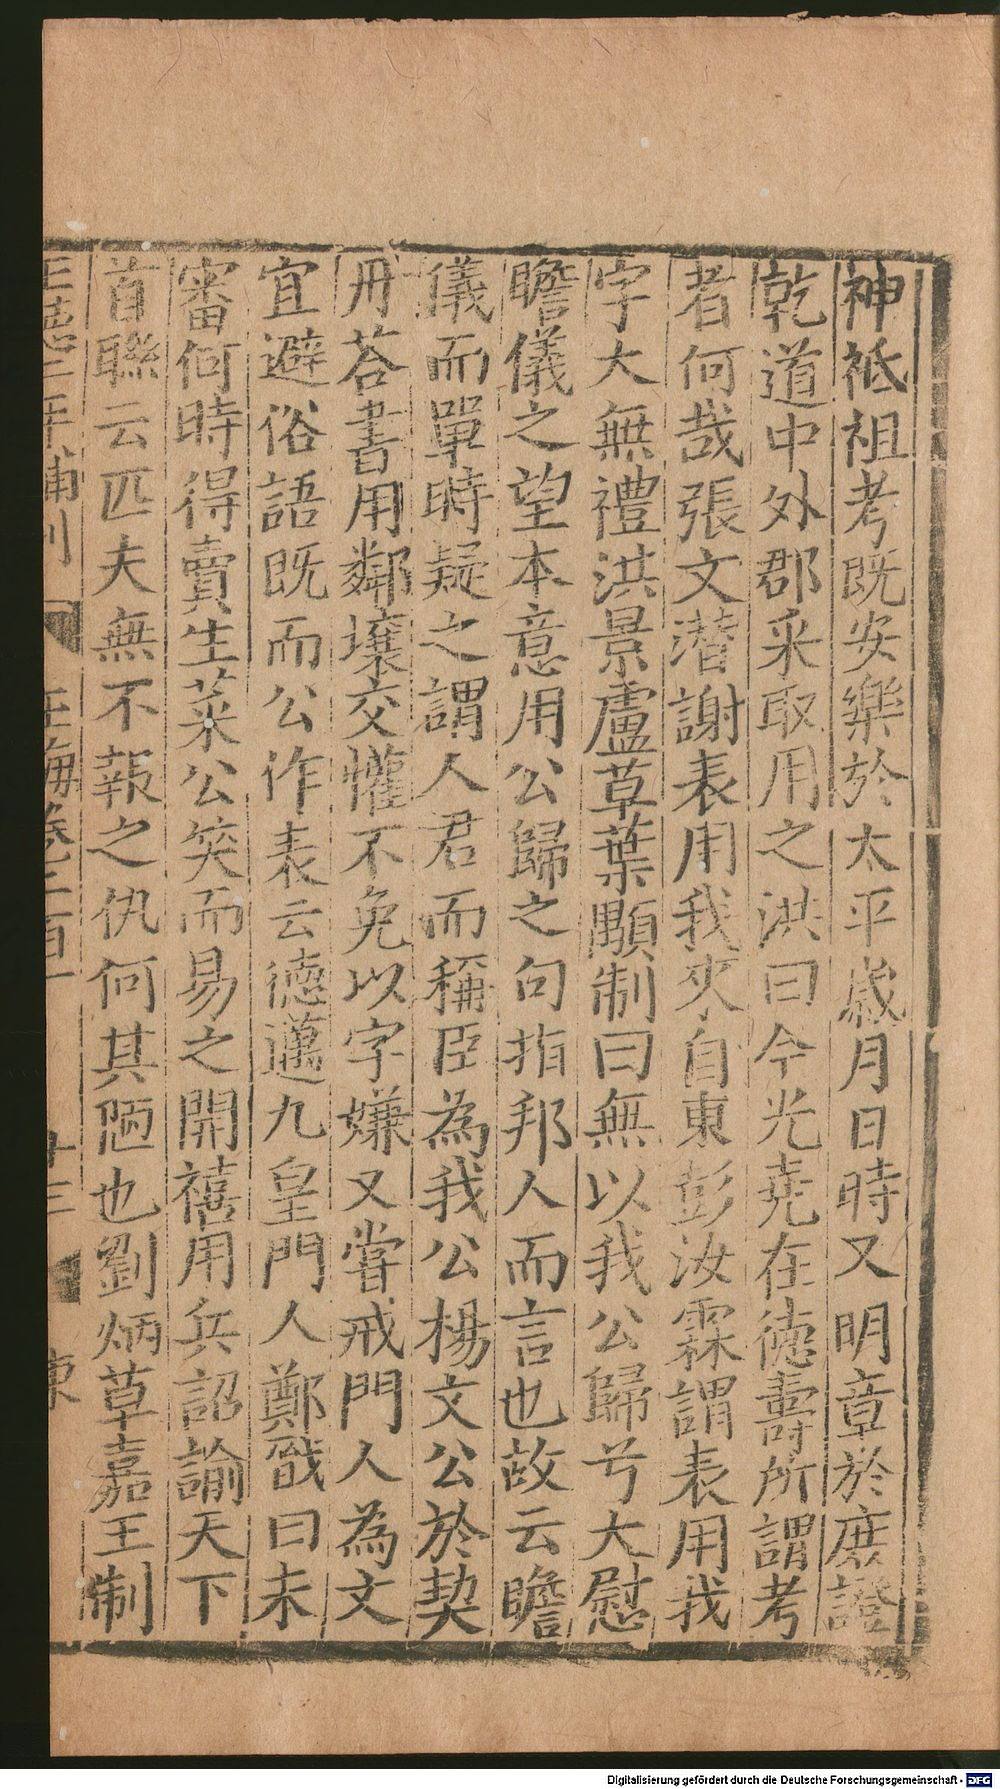 神祗祖考既安樂於太平歲月日時又明章於庶證
乾道中外郡采取用之洪曰今光堯在德壽所謂考
者何哉張文潛謝表用我來自東彭汝霖謂表用我
字大無禮洪景盧草葉顒制曰無以我公歸兮大慰
瞻儀之望本意用公歸之句指邦人而言也故云瞻
儀而單時疑之謂人君而稱臣為我公楊文公於契
丹荅書用鄰壤交懽不免以字嫌又嘗戒門人為文
宜避俗語既而公作表云德邁九皇門人鄭戩曰未
審何時得賣生菜公笑而易之開禧用兵詔諭天下
首聯云匹夫無不報之仇何其陋也劉炳草嘉王制
正德二年補刊 玉海卷二百一 十三
Digitalisierung gefördert durch die Deutsche Forschungsgemeinschaft - DFG